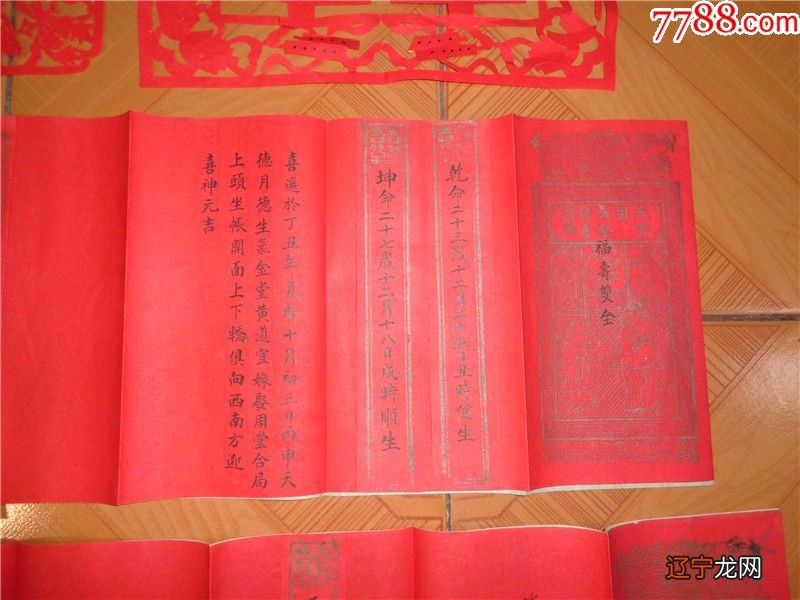 7788.com
福壽雙全
乾命二十三歲十二月二十五日丑時健生
坤命二十七歲十二月十八日戌時順生
喜選於丁丑年夏曆十月初三日丙申天
德月德生氣金堂黄道宜嫁娶周堂合局
上頭坐帳開面上下轎俱向西南方迎
喜神元吉
辽宁龙网